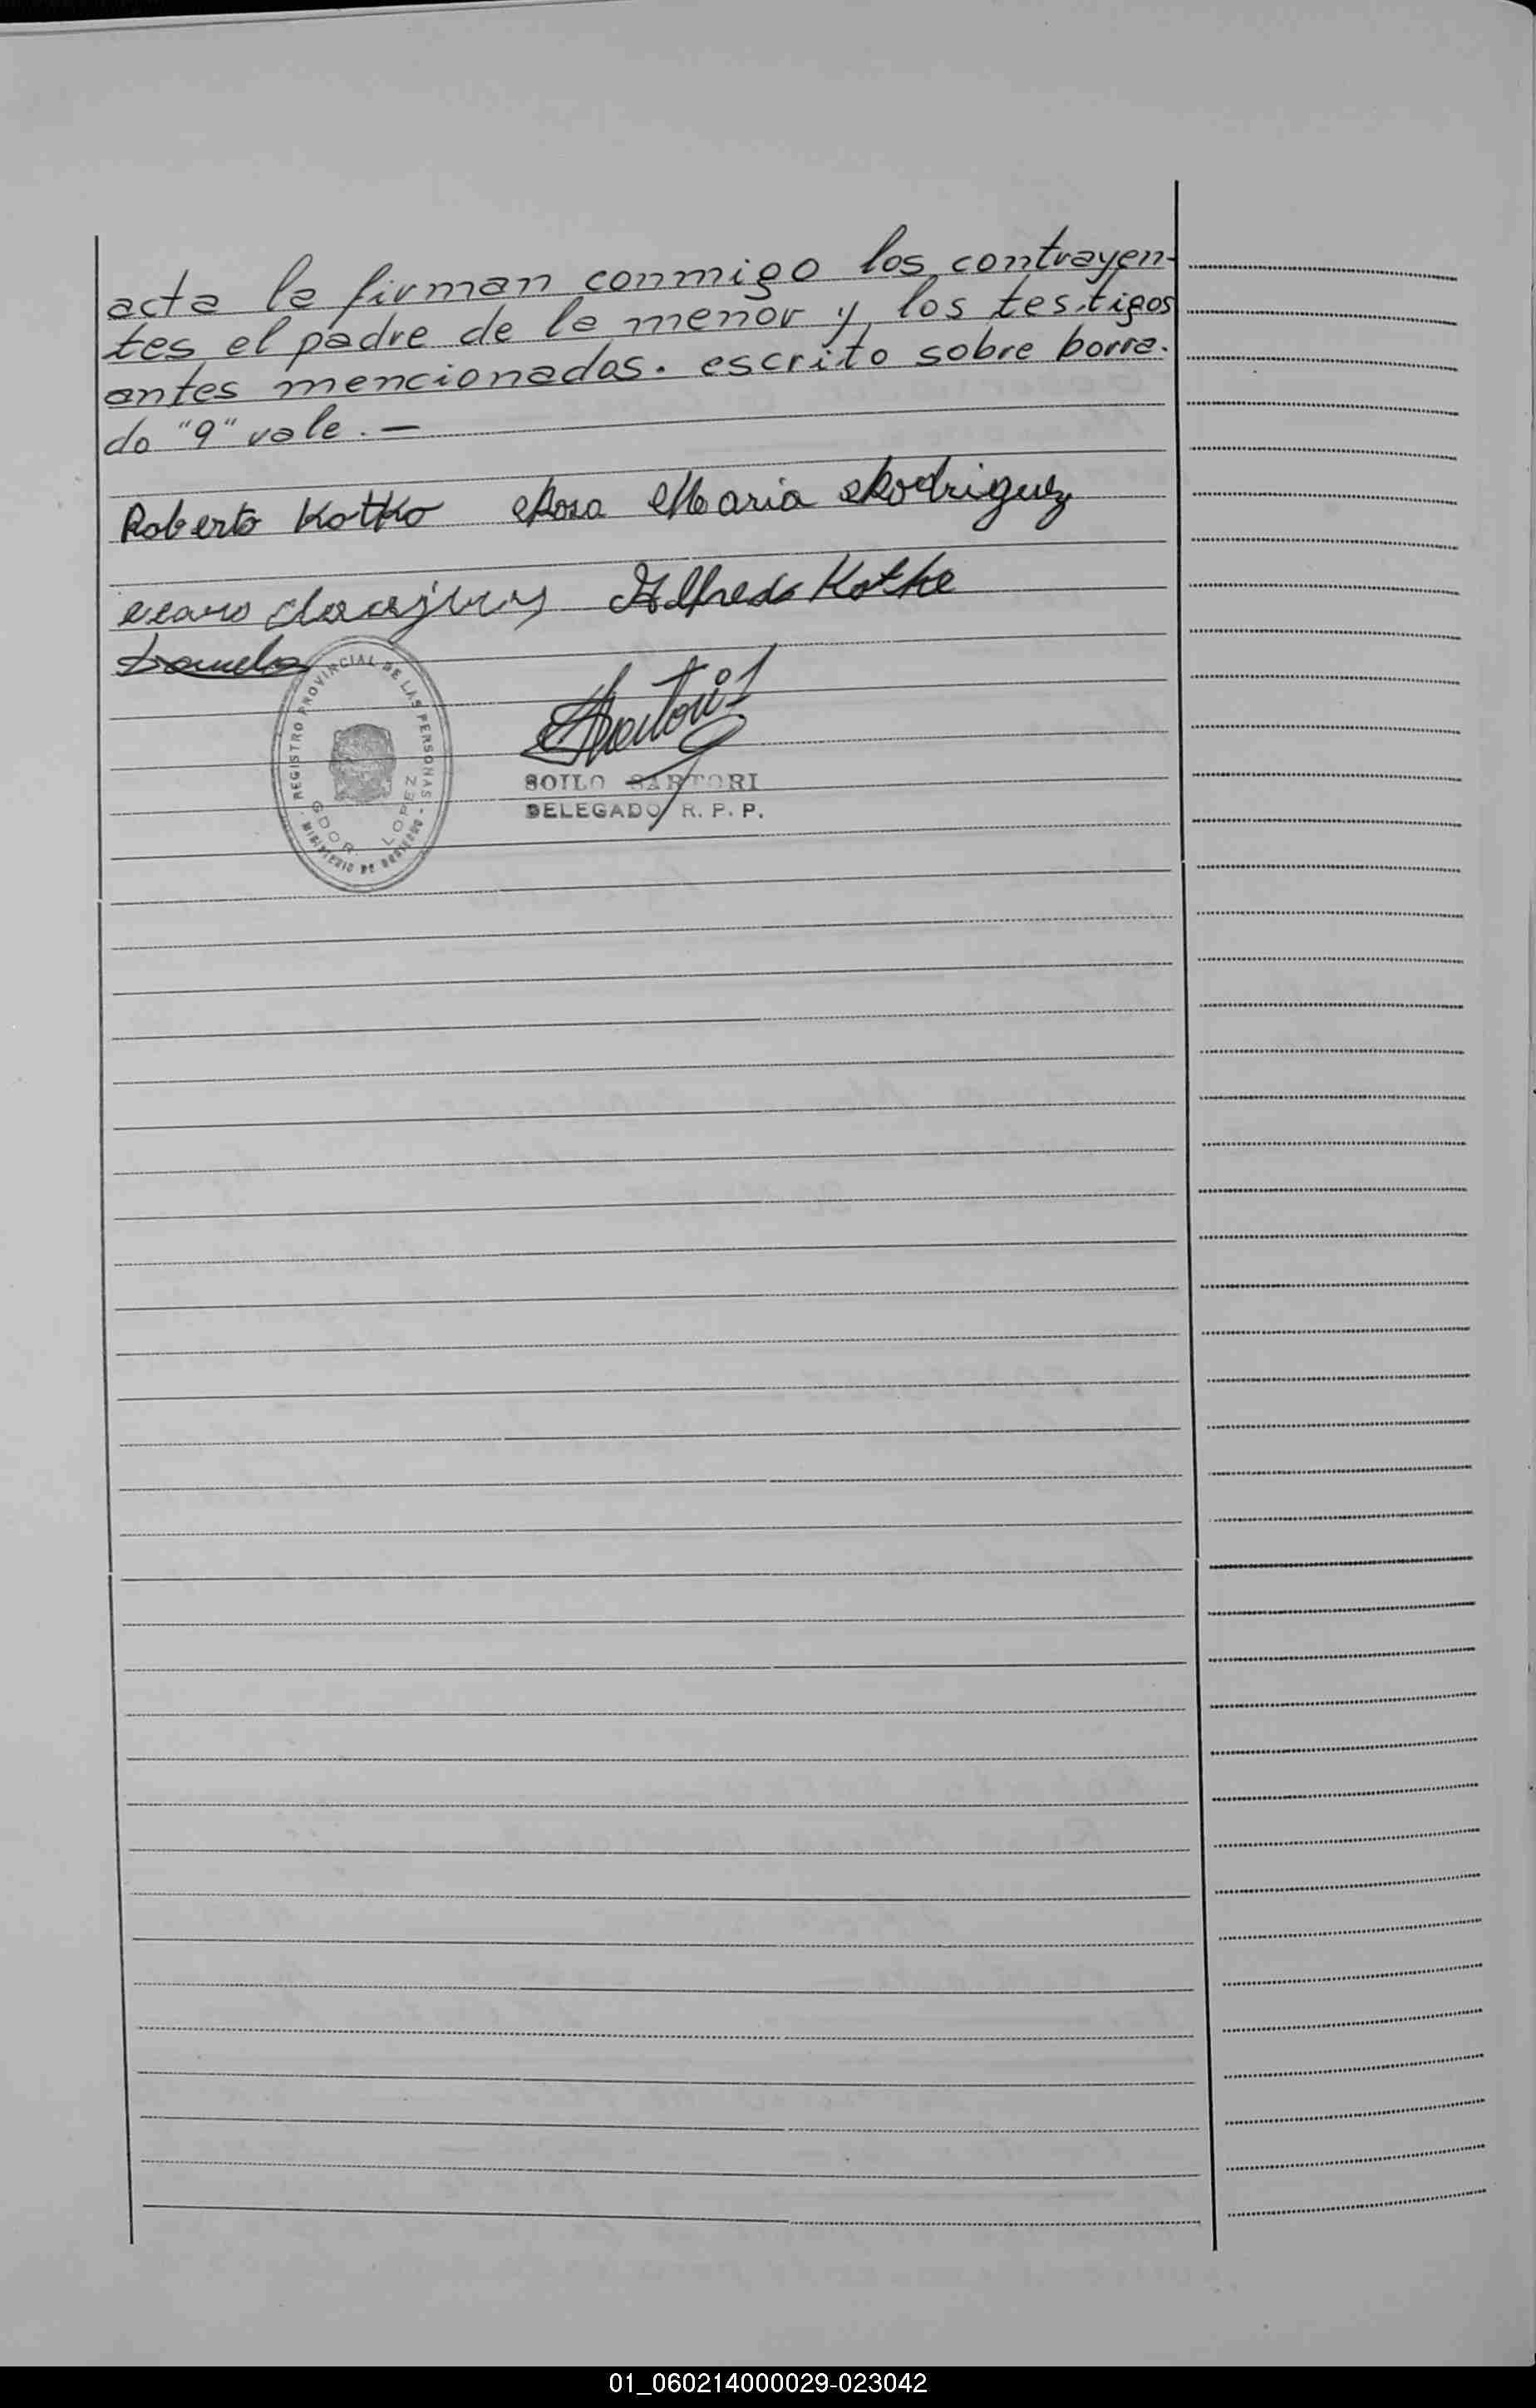 acta la firman conmigo los contrayen-
tes, el padre de la menor y los testigos
antes mencionados. escrito sobre borra-
do "9" vale. —
Roberto Kotko Rosa Maria Rodriguez
Alfredo Kotke
REGISTRO PROVINCIAL DE LAS PERSONAS - MINISTERIO DE GOBIERNO
GDOR. LOPEZ
SOILO SARTORI
DELEGADO R. P. P.
01_060214000029-023042